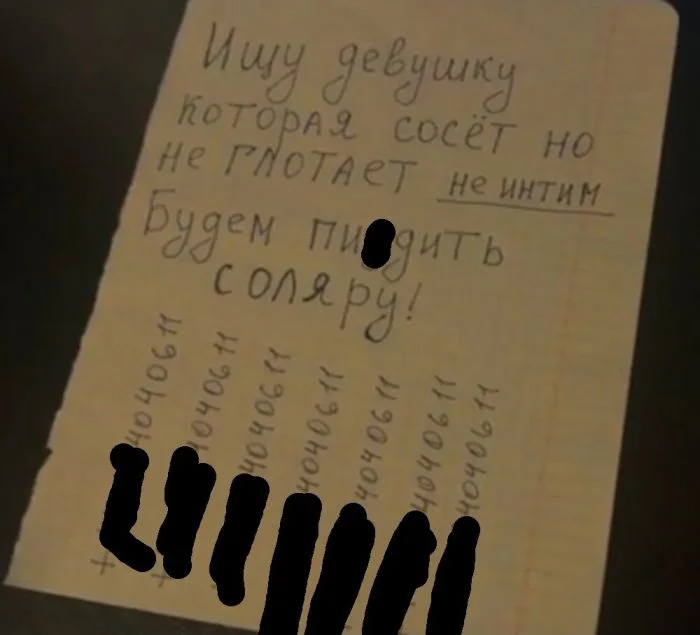 Ищу девушку
которая сосёт но
не глотает не интим
Будем пи дить
соляру!
4040611
4040611
4040611
4040611
4040611
4040611
4040611